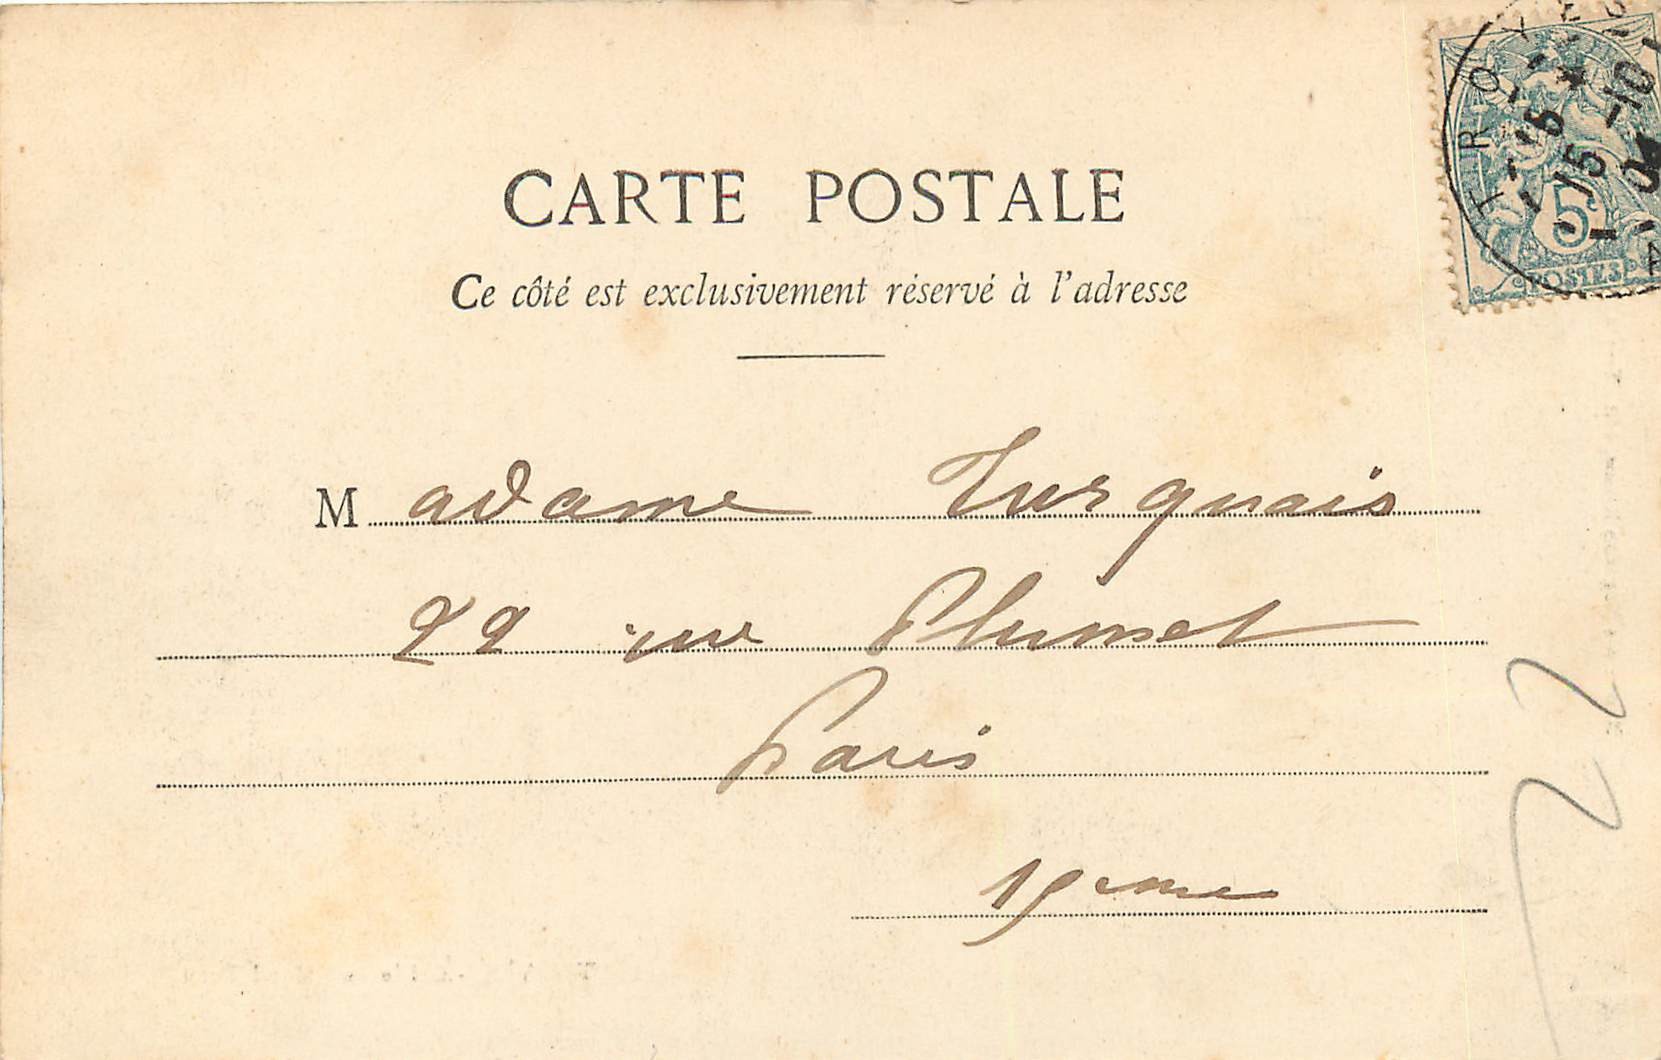 CARTE POSTALE
Ce côté est exclusivement réservé à l'adresse
TROYES
15 -10
04
5
POSTES
Madame Turquais
22 rue Plumet
Paris
15eme
22